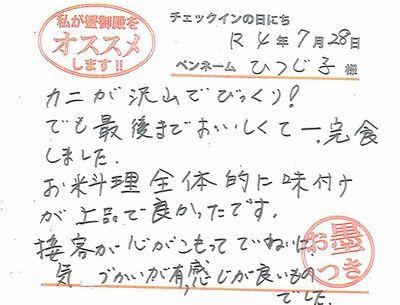 私が蟹御殿を
オススメ
します!!
チェックインの日にち
R4年7月28日
ペンネーム ひつじ子 様
カニが沢山でびっくり!
でも最後までおいしくて完食
しました.
お料理全体的に味付け
が上品で良かったです.
接客が心がこもってていねいに.
気づかいが有,感じが良いもの
でした.
お墨
つき